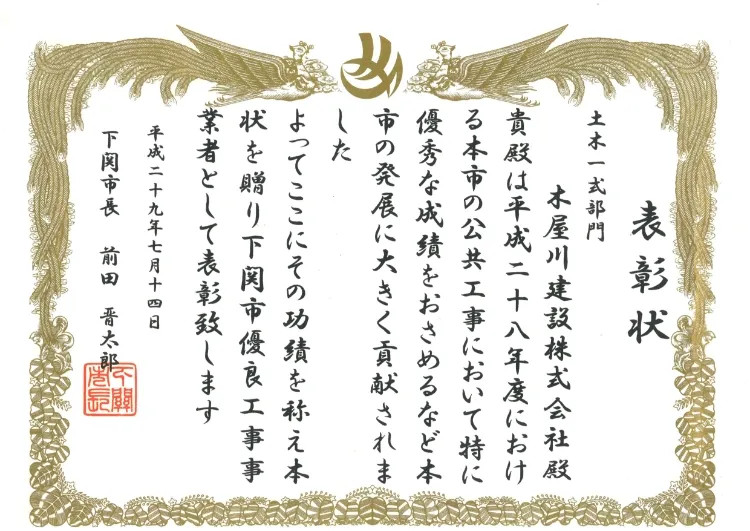 表彰状
土木一式部門
木屋川建設株式会社殿
貴殿は平成二十八年度におけ
る本市の公共工事において特に
優秀な成績をおさめるなど本
市の発展に大きく貢献されま
した
よってここにその功績を称え本
状を贈り下関市優良工事事
業者として表彰致します
平成二十九年七月十四日
下関市長 前田 晋太郎
下關市長